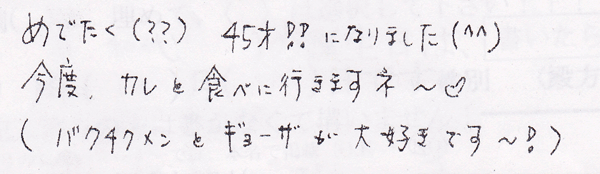 めでたく(??) 45才!! になりました(^^)
今度、カレと食べに行きますネ～♡
(バクチクメンとギョーザが大好きです～!)